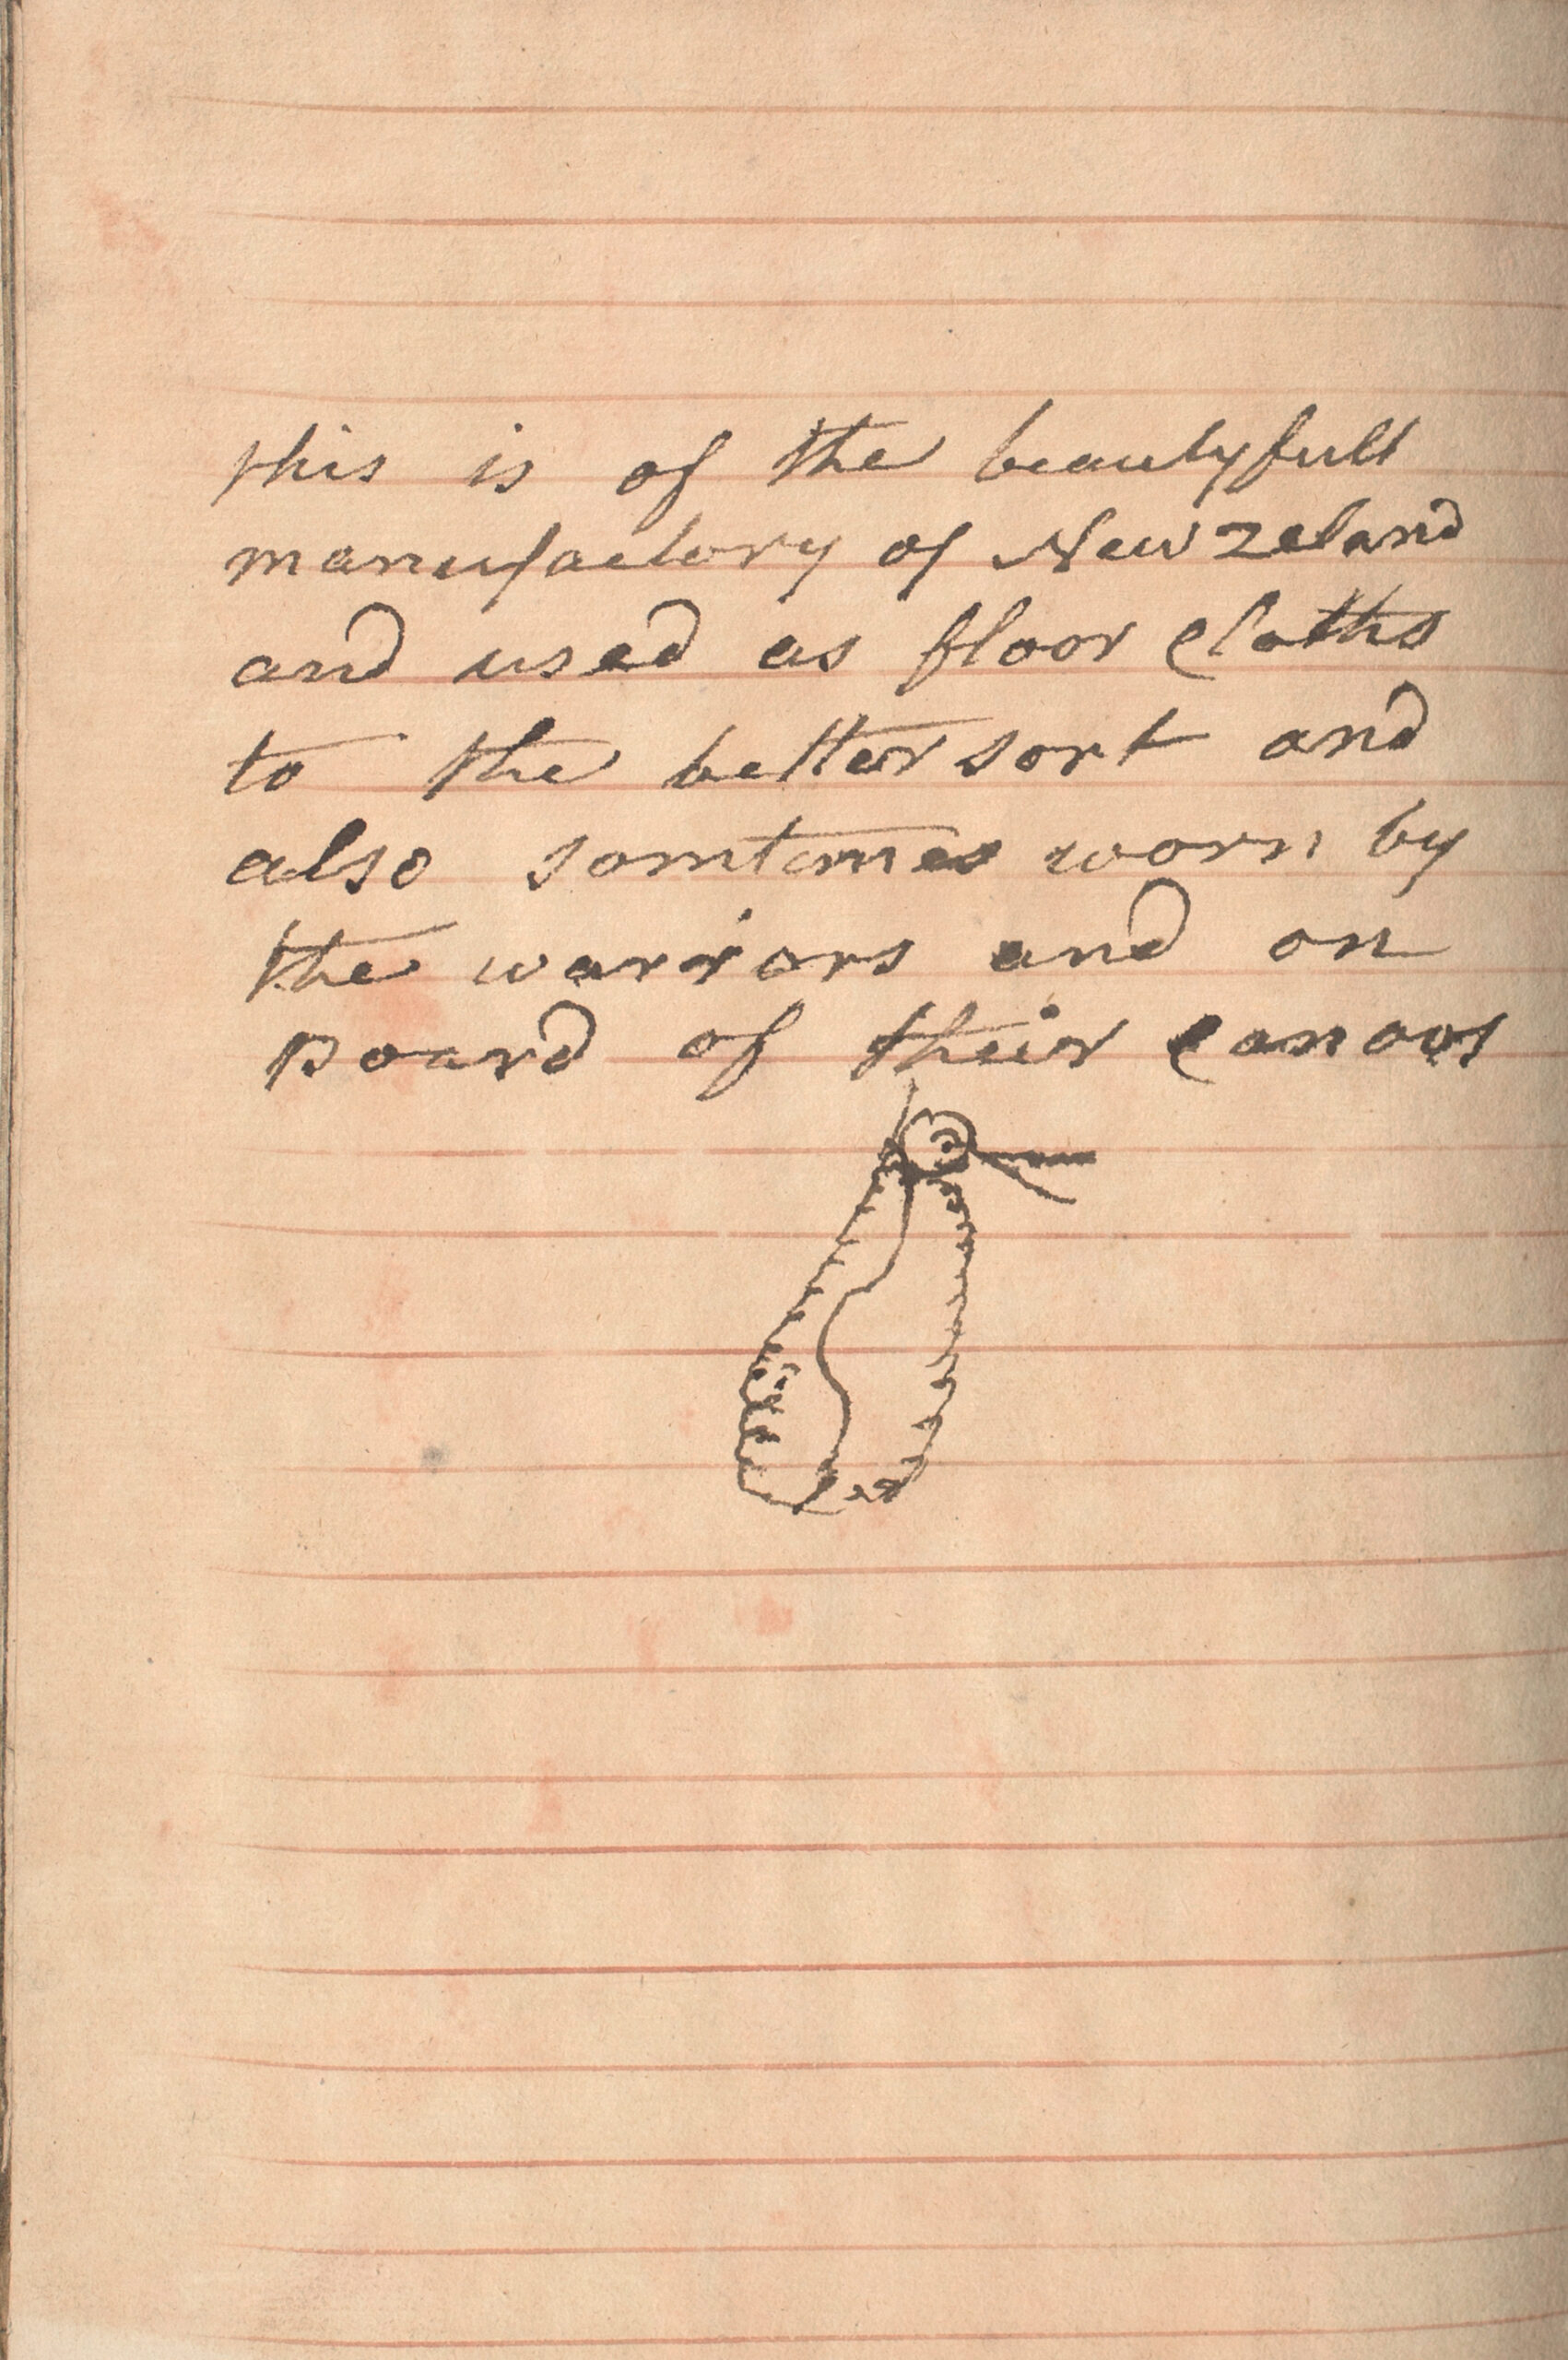 this is of the beautyfull
manufactory of New Zeland
and used as floor cloths
to the better sort and
also somtimes worn by
the warriors and on
Board of their canoos